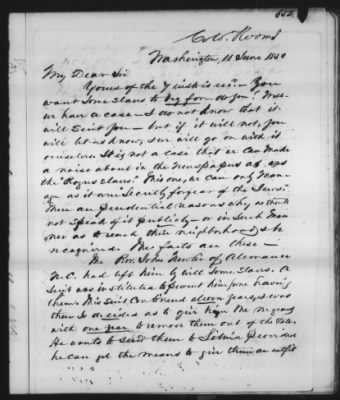 Col. Rooms
Washington, 11 June 1850
My Dear Sir
Yours of the 7 inst is rec'd. You
want some slaves to beg for, do you? Well
we have a case — I do not know that it
will suit you — but if it will not, you
will let us know, & we will go on with it
ourselves. It is not a case that we can make
a noise about in the Newspapers as
the This one, we can only Man
age as it were "secretly for fear of the Jews."
There are prudential reasons why, we should
not speak of it publicly — or in such Man
ner as to reach their neighborhood
The facts are these —
The Rev. John of Alamance
N.C. had left him by will some slaves. A
suit was instituted to prevent him from having
them. This suit continued eleven years, & was
then so decided as to give him the Negroes
with one year to remove them out of the State.
He wants to send them to Liberia provided
he can get the means to give them an outfit